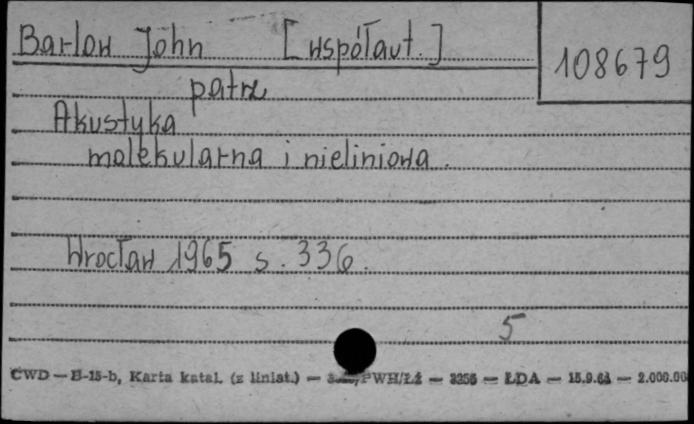 Barlow John [współaut.]
108679
patrz
Akustyka
molekularna i nieliniowa.
Wrocław 1965 s. 336.
5
CWD — B-15-b, Karta katal. (z liniat.) — PWH/Łź — 3256 — ŁDA — 15.9.64 — 2.000.00